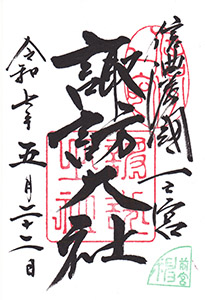 信濃國一之宮
諏訪大社
令和七年五月二十二日
前宮